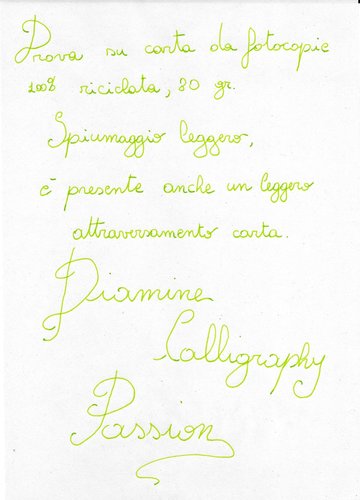 Prova su carta da fotocopie
100% riciclata, 80 gr.
Spiumaggio leggero,
è presente anche un leggero
attraversamento carta.
Diamine
Calligraphy
Passion